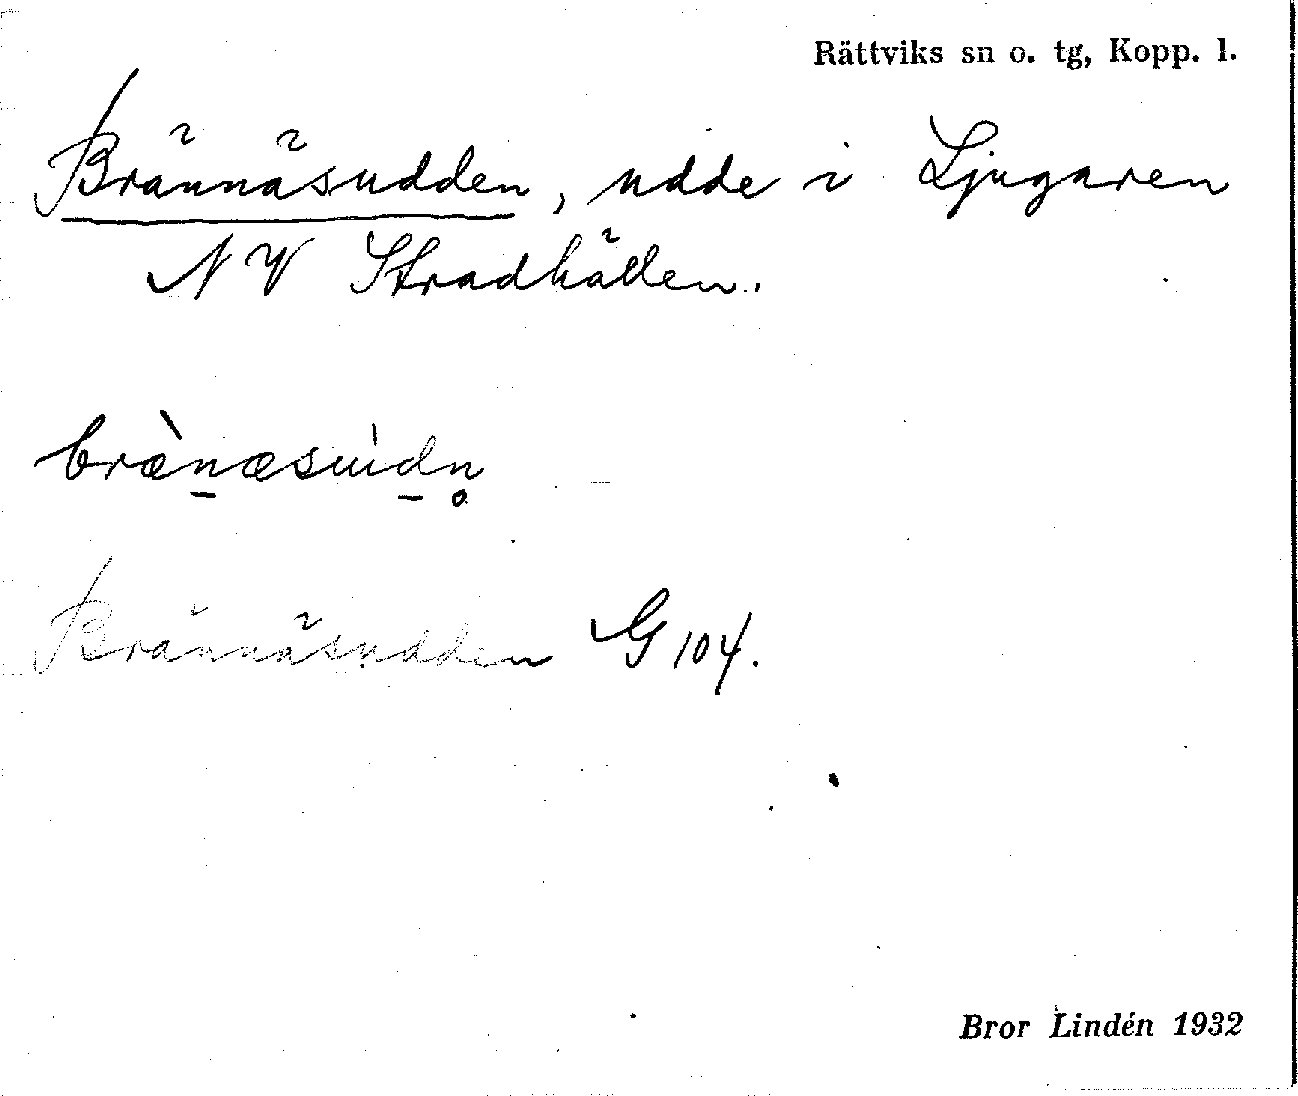 Rättviks sn o. tg, Kopp. l.
Brännäsudden, udde i Ljugaren
NV Stradhällen.
bræ̀n̲æsuı̍d̲n̥
Brännäsudden G 104.
Bror Lindén 1932